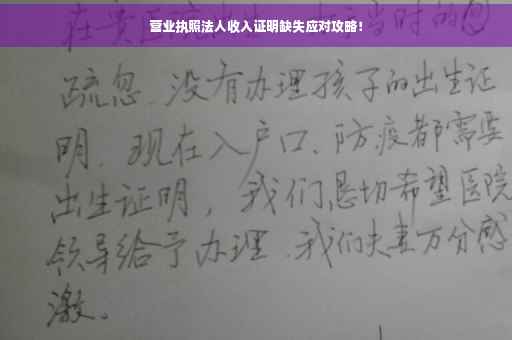 营业执照法人收入证明缺失应对攻略！
在贵医院出生，当时的
疏忽、没有办理孩子的出生证
明、现在入户口、防疫都需要
出生证明，我们恳切希望医院
领导给予办理、我们夫妻万分感
激。